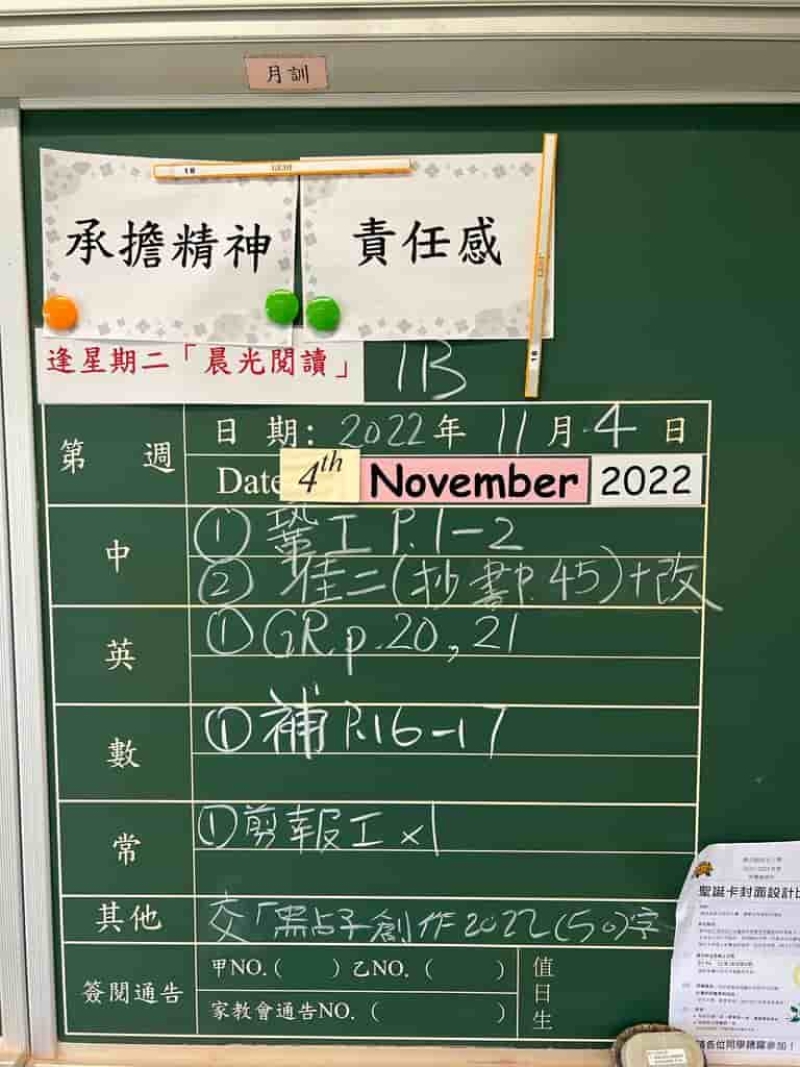 月訓
承擔精神
責任感
逢星期二「晨光閱讀」
1B
第 週
日 期: 2022年 11月 4 日
Date 4th November 2022
中
① 鞏工 P.1-2
② 佳二(抄書P.45)+改
英
① GR p.20, 21
數
① 補 P.16-17
常
① 剪報工 x1
其他
交「點子創作2022(50)字
簽閱通告
甲NO.( ) 乙NO. ( )
家教會通告NO. ( )
值日生
聖誕卡封面設計比
請各位同學踴躍參加！